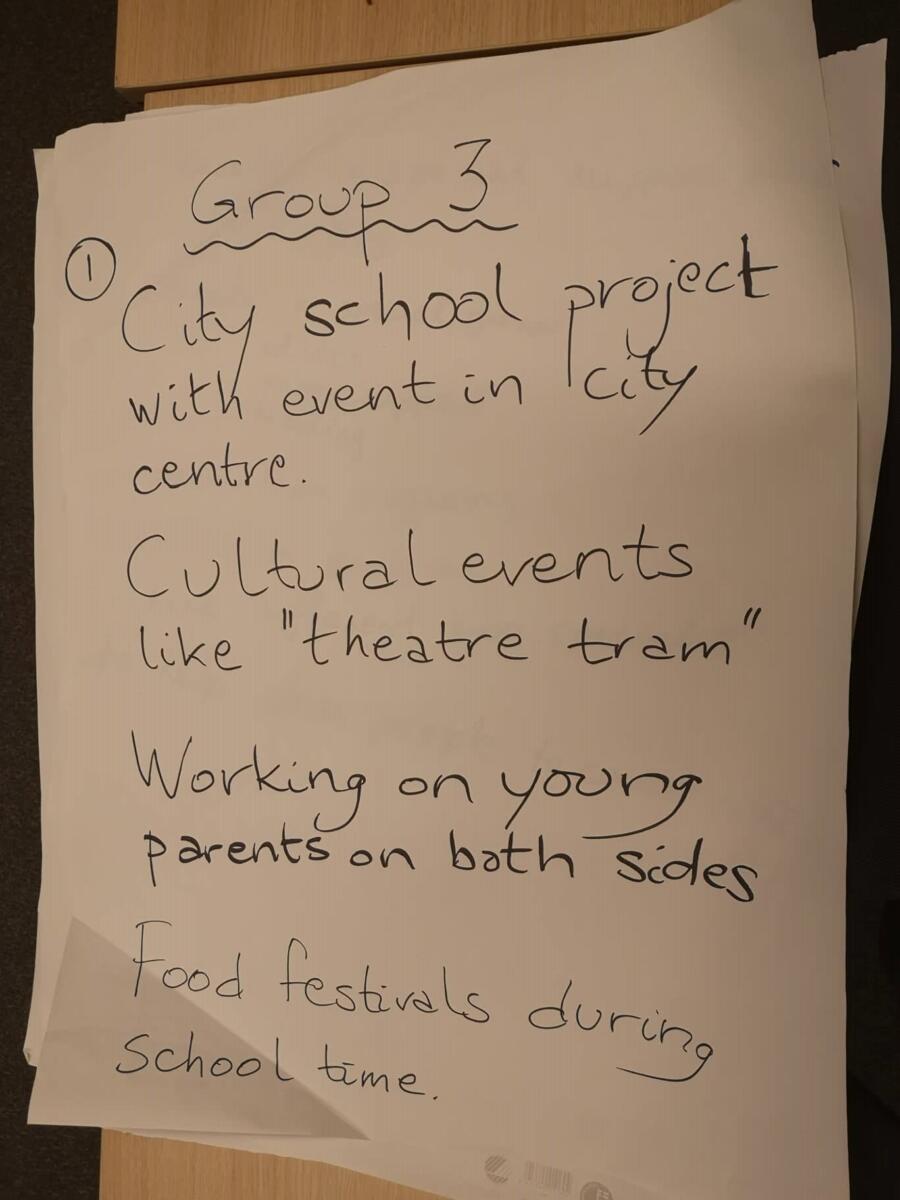 Group 3
① City school project
with event in city
centre.
Cultural events
like "theatre tram"
Working on young
parents on both sides
Food festivals during
School time.